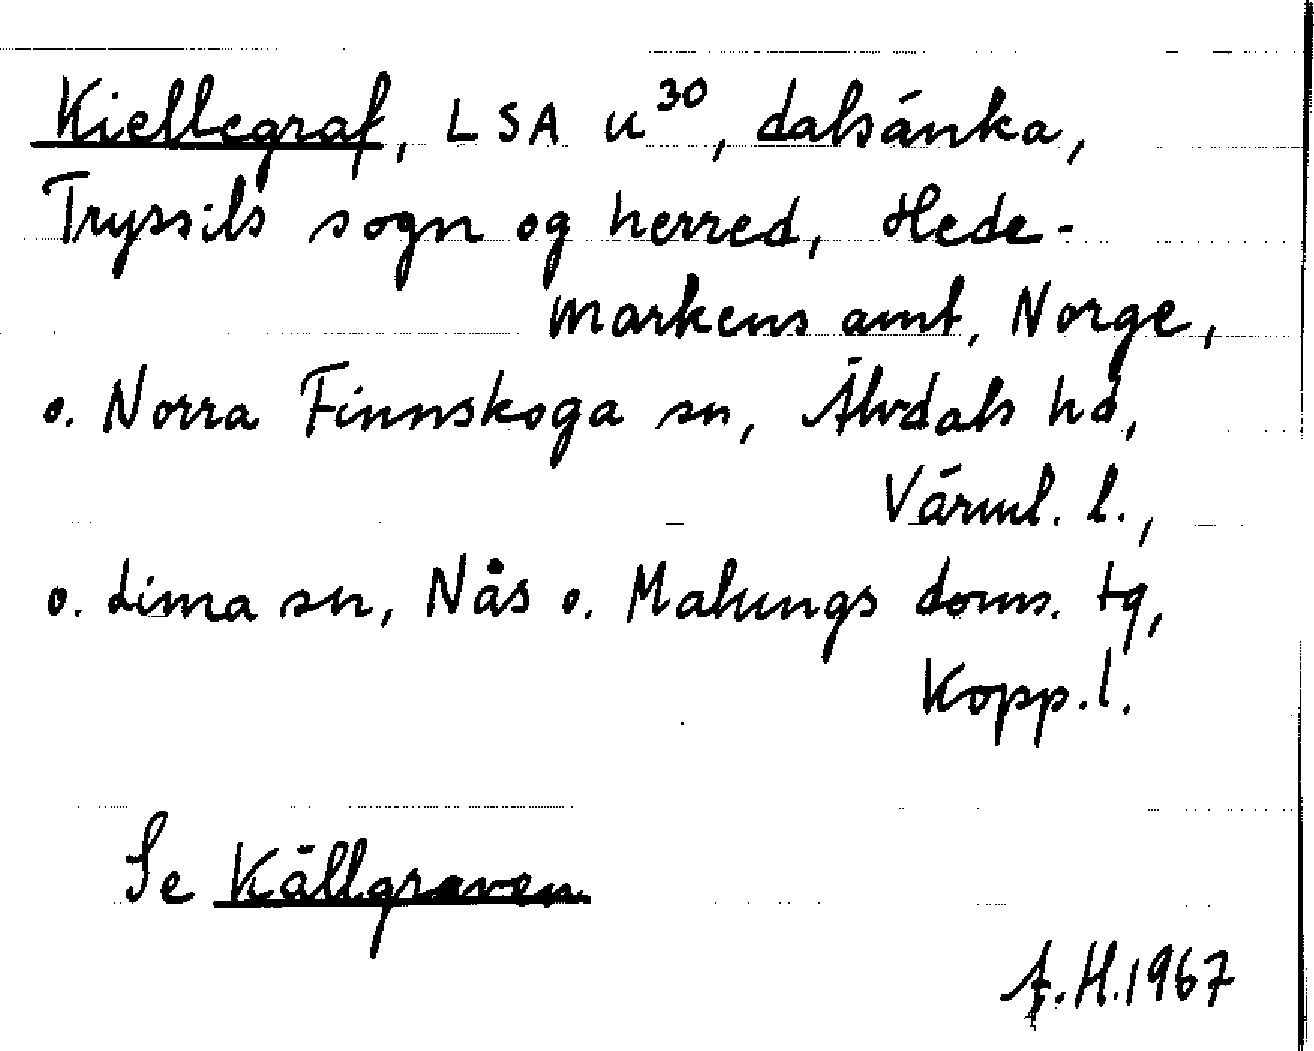 Kiellegraf, LSA u30, dalsänka,
Tryssils sogn og herred, Hede-
markens amt, Norge,
o. Norra Finnskoga sn, Älvdals hd,
Värml. l.,
o. Lima sn, Nås o. Malungs doms. tg,
Kopp. l.
Se Källgraven
f. H. 1967